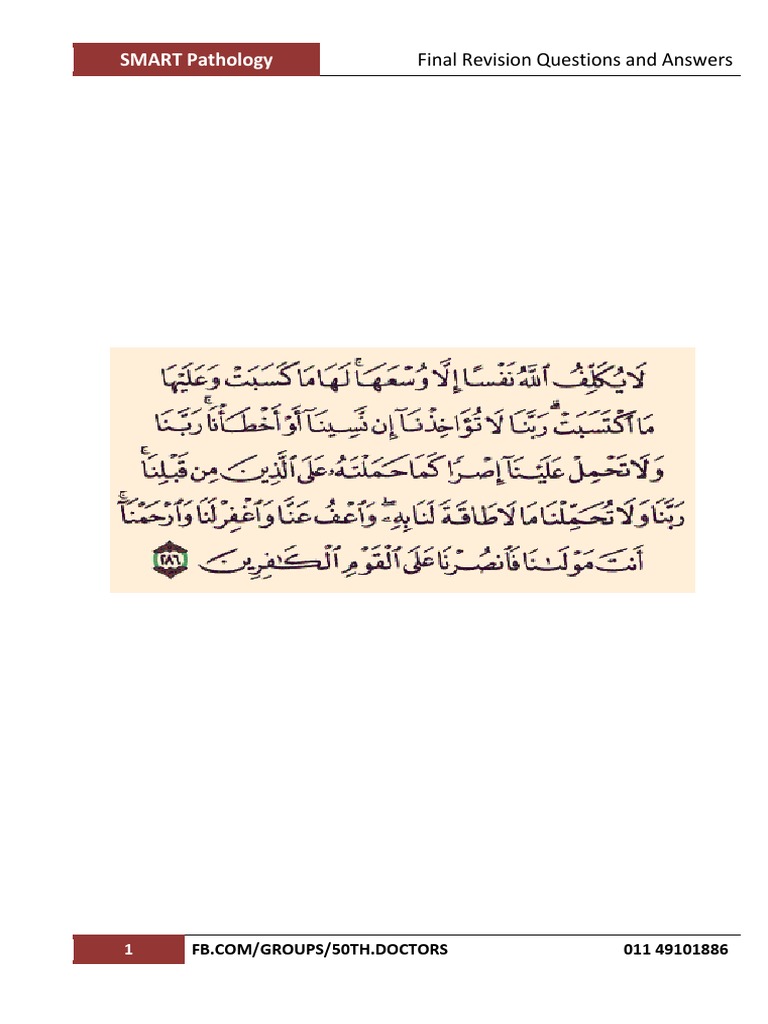 SMART Pathology
Final Revision Questions and Answers
لَا يُكَلِّفُ ٱللَّهُ نَفْسًا إِلَّا وُسْعَهَا ۚ لَهَا مَا كَسَبَتْ وَعَلَيْهَا
مَا ٱكْتَسَبَتْ ۗ رَبَّنَا لَا تُؤَاخِذْنَآ إِن نَّسِينَآ أَوْ أَخْطَأْنَا ۚ رَبَّنَا
وَلَا تَحْمِلْ عَلَيْنَآ إِصْرًا كَمَا حَمَلْتَهُۥ عَلَى ٱلَّذِينَ مِن قَبْلِنَا ۚ
رَبَّنَا وَلَا تُحَمِّلْنَا مَا لَا طَاقَةَ لَنَا بِهِۦ ۖ وَٱعْفُ عَنَّا وَٱغْفِرْ لَنَا وَٱرْحَمْنَآ ۚ
أَنتَ مَوْلَىٰنَا فَٱنصُرْنَا عَلَى ٱلْقَوْمِ ٱلْكَٰفِرِينَ ٢٨٦
1
FB.COM/GROUPS/50TH.DOCTORS
011 49101886